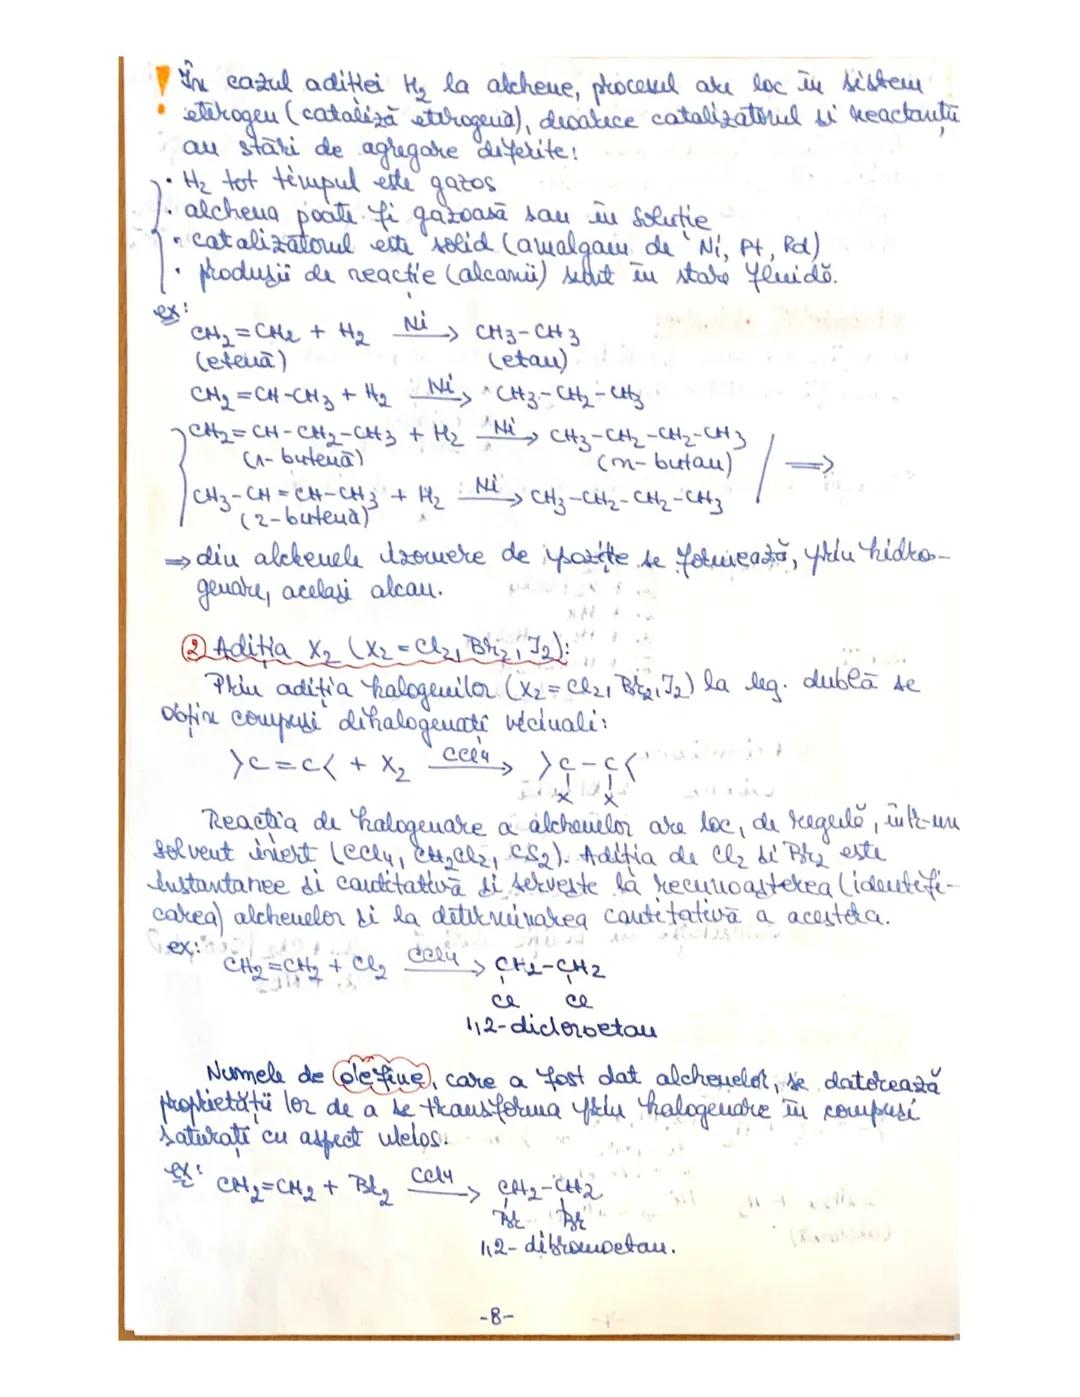 ! În cazul adiției H₂ la alchene, procesul are loc în sistem
eterogen (cataliză eterogenă), deoarece catalizatorul și reactanții
au stări de agregare diferite:
· H₂ tot timpul este gazos
· alchena poate fi gazoasă sau în soluție
· catalizatorul este solid (amalgam de Ni, Pt, Pd)
· produșii de reacție (alcanii) sunt în stare fluidă.
ex:
CH₂=CH₂ + H₂ —Ni→ CH₃-CH₃
(etenă) (etan)
CH₂=CH-CH₃ + H₂ —Ni→ CH₃-CH₂-CH₃
CH₂=CH-CH₂-CH₃ + H₂ —Ni→ CH₃-CH₂-CH₂-CH₃
(1-butenă) (n-butan) / ⇒
CH₃-CH=CH-CH₃ + H₂ —Ni→ CH₃-CH₂-CH₂-CH₃
(2-butenă)
⇒ din alchenele izomere de poziție se formează, prin hidro-
genare, același alcan.
② Adiția X₂ (X₂ = Cl₂, Br₂, I₂):
Prin adiția halogenilor (X₂ = Cl₂, Br₂, I₂) la leg. dublă se
obțin compuși dihalogenați vicinali:
>C=C< + X₂ —CCl₄→ >C-C<
X X
Reacția de halogenare a alchenelor are loc, de regulă, într-un
solvent inert (CCl₄, CH₂Cl₂, CS₂). Adiția de Cl₂ și Br₂ este
instantanee și cantitativă și servește la recunoașterea (identifi-
carea) alchenelor și la determinarea cantitativă a acestora.
ex:
CH₂=CH₂ + Cl₂ —CCl₄→ CH₂-CH₂
Cl Cl
1,2-dicloroetan
Numele de olefine, care a fost dat alchenelor, se datorează
proprietății lor de a se transforma prin halogenare în compuși
saturați cu aspect uleios.
ex: CH₂=CH₂ + Br₂ —CCl₄→ CH₂-CH₂
Br Br
1,2-dibromoetan.
-8-